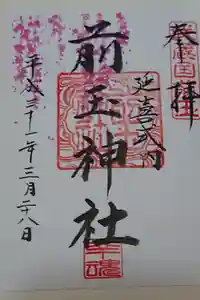 奉拝
延喜式内
前玉神社
平成三十一年三月二十八日
幸魂